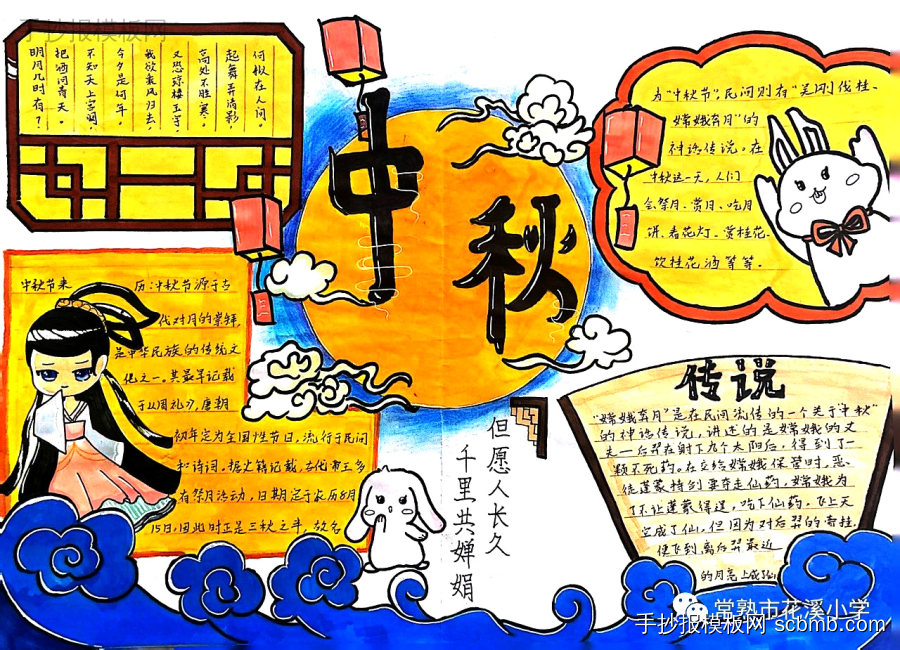 手抄报模板网
明月几时有？
把酒问青天。
不知天上宫阙，
今夕是何年。
我欲乘风归去，
又恐琼楼玉宇，
高处不胜寒。
起舞弄清影
何似在人间。
中秋
"中秋节"，民间则有"吴刚伐桂、
嫦娥奔月"的
神话传说。在
中秋这一天，人们
会祭月、赏月、吃月
饼、看花灯、赏桂花、
饮桂花酒等等。
中秋节来历：中秋节源于古
代对月的崇拜，
是中华民族的传统文
化之一。其最早记载
于《周礼》，唐朝
初年定为全国性节日，流行于民间
和诗词。据史籍记载，古代帝王多
有祭月活动，日期定于农历8月
15日，因此时正是三秋之半，故名
但愿人长久
千里共婵娟
传说
"嫦娥奔月"是在民间流传的一个关于"中秋"
的神话传说，讲述的是嫦娥的丈
夫—后羿在射下九个太阳后，得到了一
颗不死药。在交给嫦娥保管时，恶
徒蓬蒙持剑要夺走仙药，嫦娥为
了不让蓬蒙得逞，吃下仙药，飞上天
空成了仙，但因为对后羿的牵挂，
便飞到离后羿最近
的月亮上成仙
常熟市花溪小学
手抄报模板网 scbmb.com